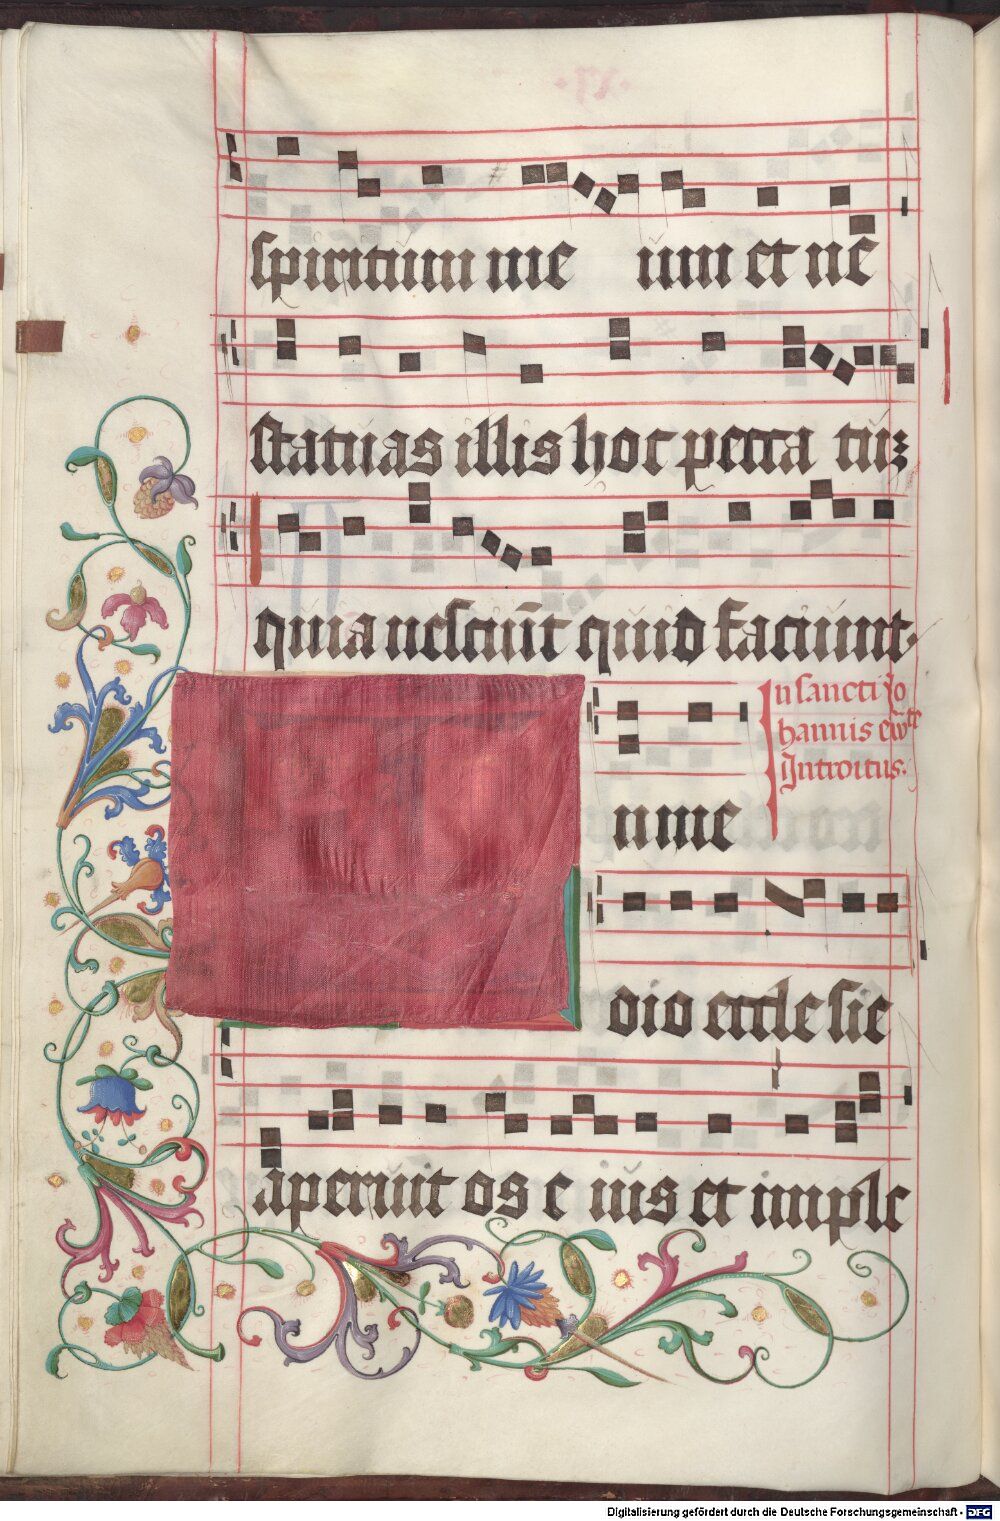 spiritum me um et ne
statuas illis hoc pecca tū:
quia nesciūt quid faciunt.
In sancti Jo
hannis ewᵗᵉ
Introitus.
n me
dio eccle sie
aperuit os e ius et imple
Digitalisierung gefördert durch die Deutsche Forschungsgemeinschaft - DFG